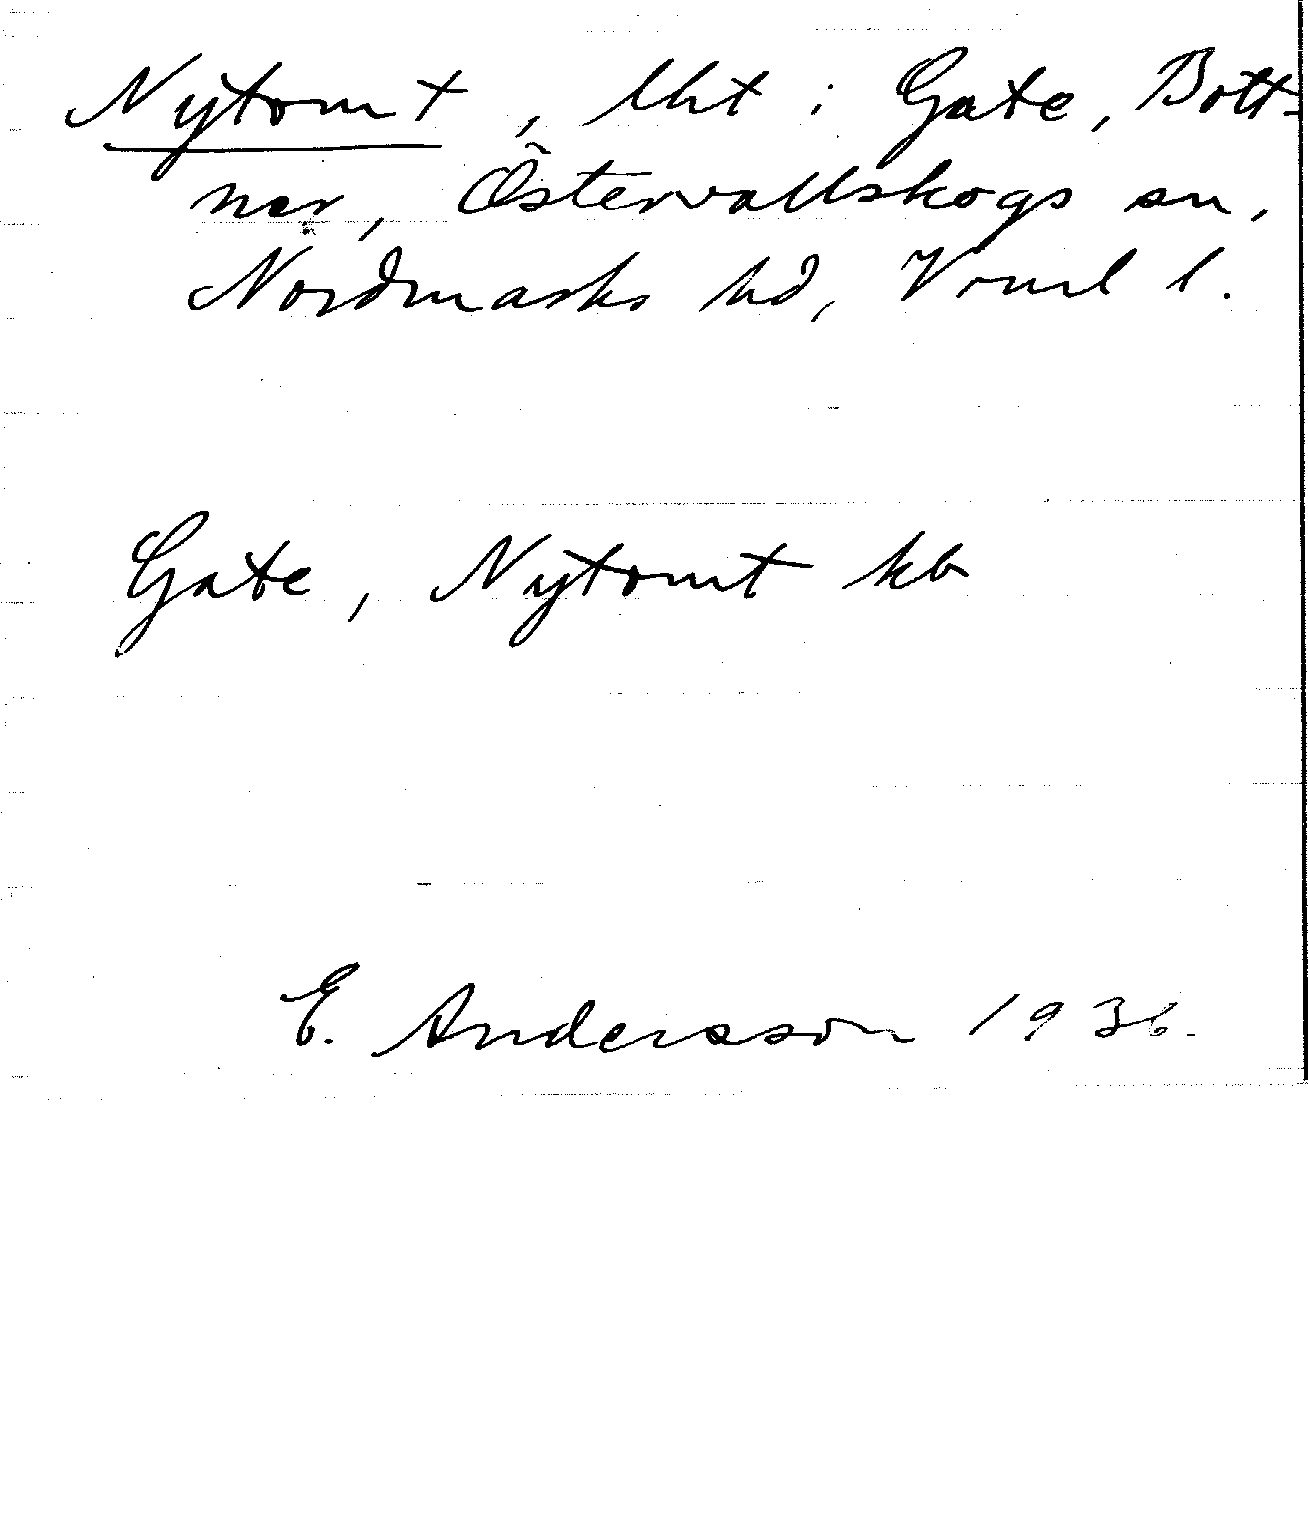 Nytomt, lht i Gate, Bott-
ner, Östervallskogs sn,
Nordmarks hd, Vrml l.
Gate, Nytomt kb
E. Andersson 1936.